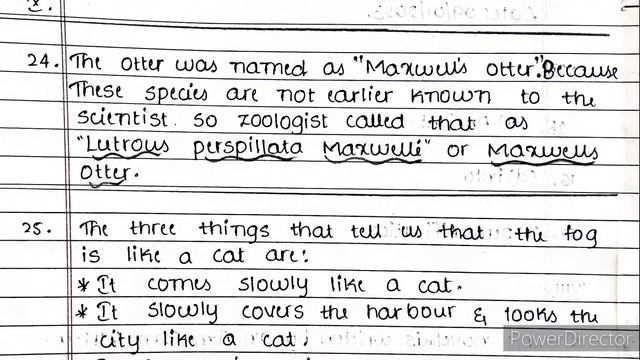 24. The otter was named as "Maxwell's otter". Because
These species are not earlier known to the
scientist. so zoologist called that as
"Lutrous perspillata Maxwelli" or Maxwells
otter.
25. The three things that tell us that the fog
is like a cat are:
* It comes slowly like a cat.
* It slowly covers the harbour & looks the
city like a cat.
PowerDirector